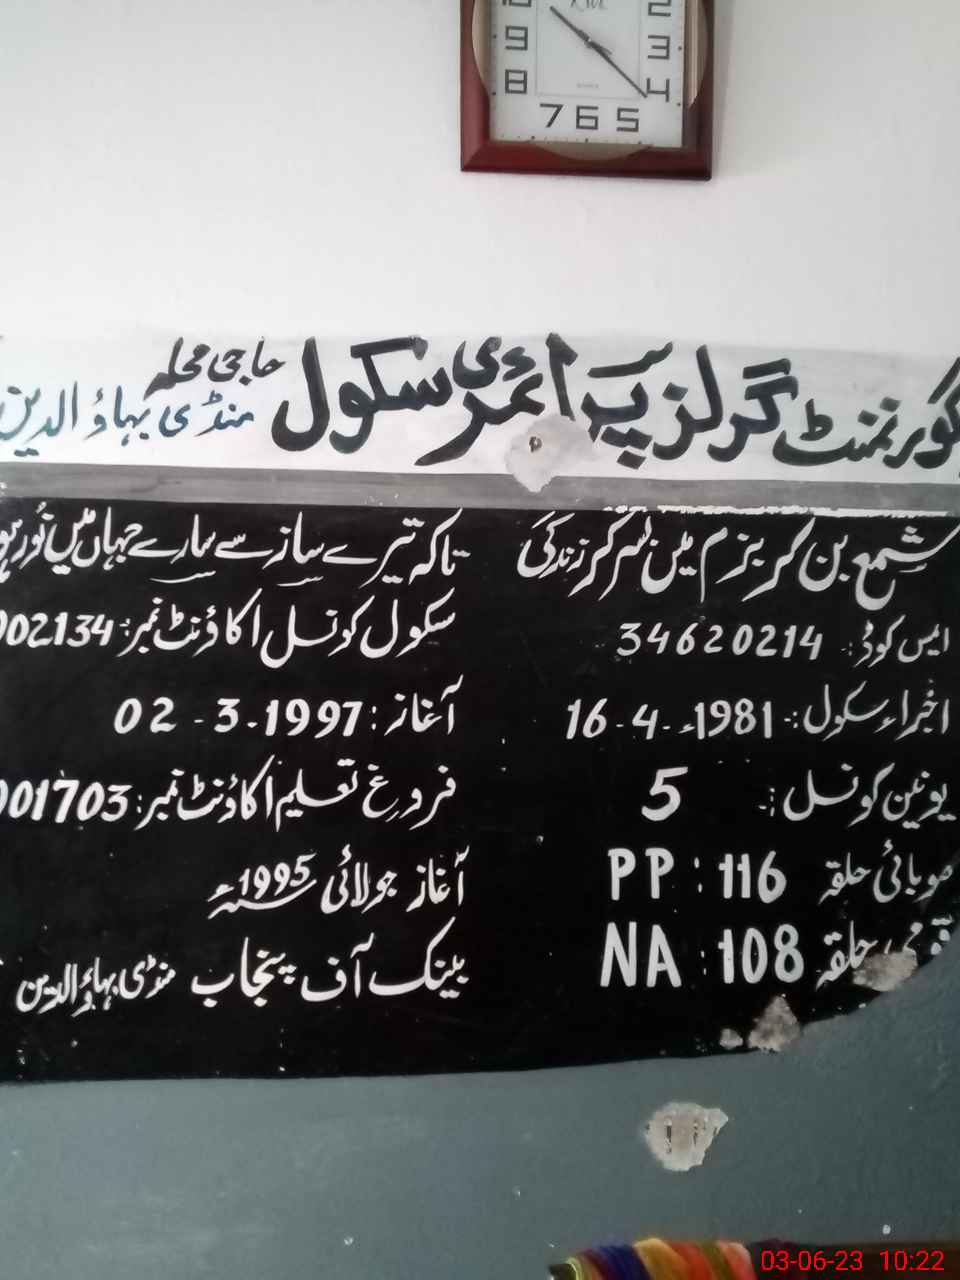 8 9 10
7 6 5 4 3 2
گورنمنٹ گرلز پرائمری سکول
حاجی محلہ
منڈی بہاؤالدین
شمع بن کر بزم میں بسر کر زندگی
تاکہ تیرے ساز سے سارے جہاں میں نور ہو
ایمس کوڈ: 34620214
سکول کونسل اکاؤنٹ نمبر: 002134
اجراء سکول:- 16-4-1981ء
آغاز: 02-3-1997
یونین کونسل:- 5
فروغ تعلیم اکاؤنٹ نمبر: 001703
صوبائی حلقہ PP : 116
آغاز جولائی 1995ء
قومی حلقہ NA : 108
بینک آف پنجاب منڈی بہاؤالدین
03-06-23 10:22